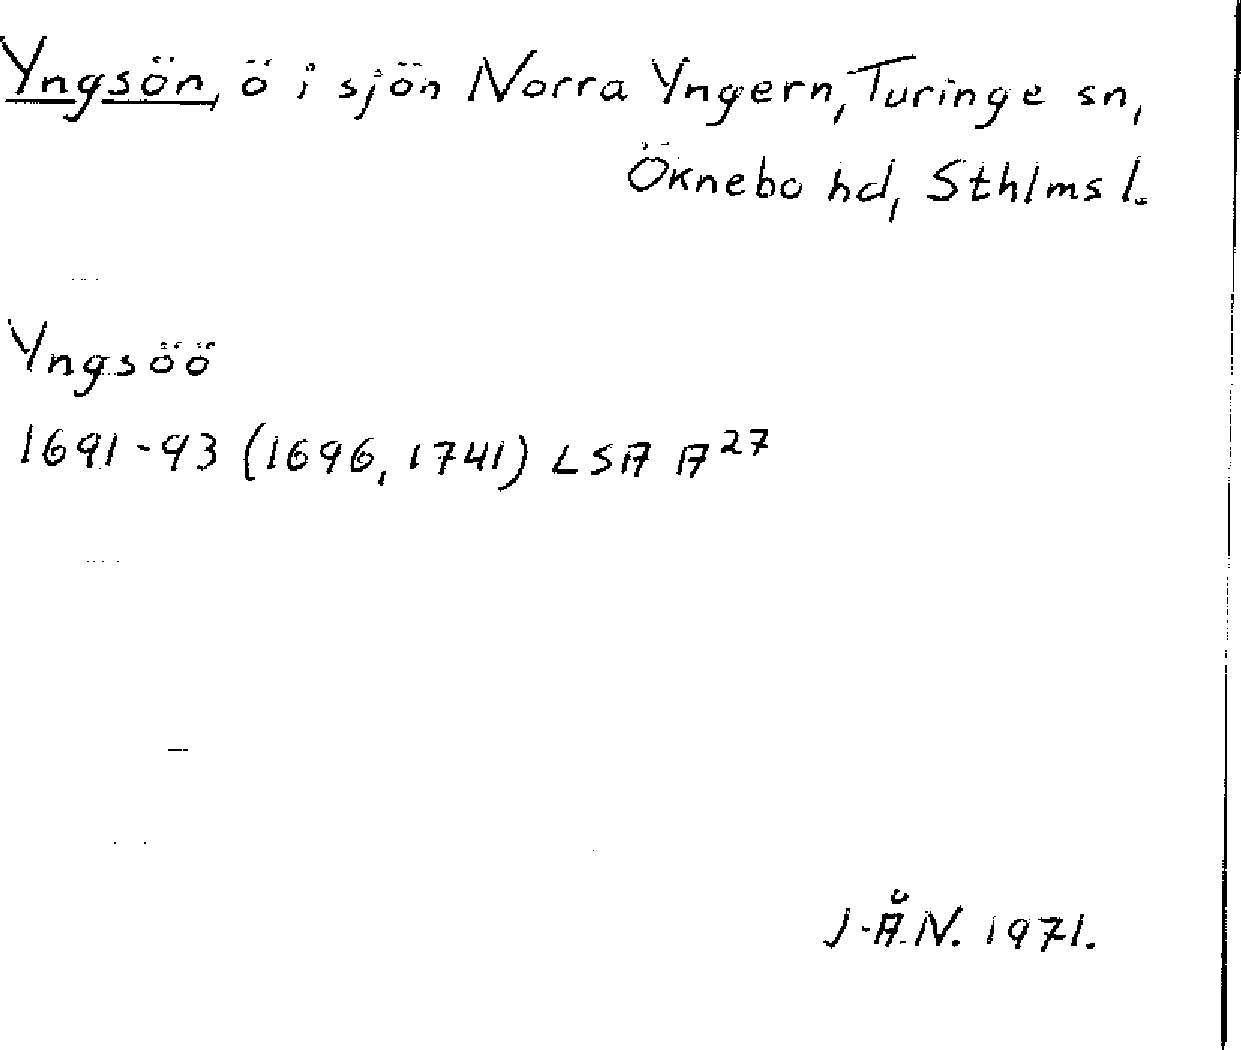 Yngsön, ö i sjön Norra Yngern, Turinge sn,
Öknebo hd, Sthlms l.
Yngsöö
1691-93 (1696, 1741) LSA A²⁷
J-Å.N. 1971.